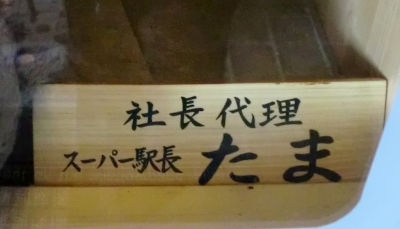 社長代理
スーパー駅長 たま